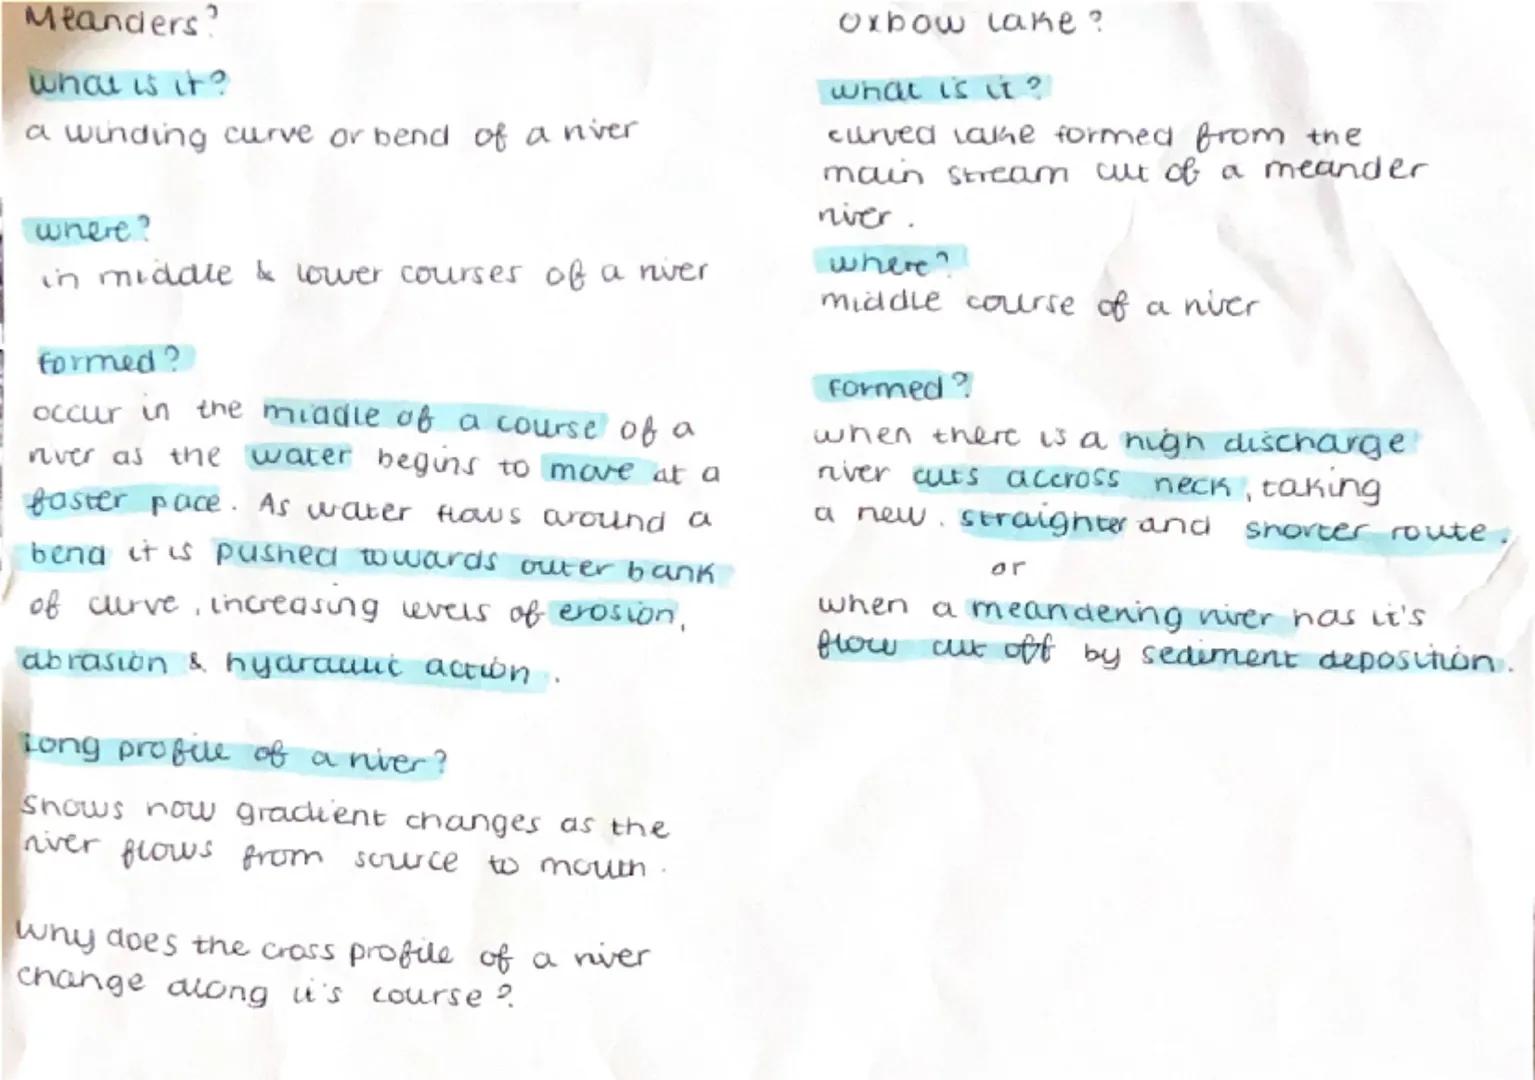 Meanders?
what is it?
a winding curve or bend of a river
where?
in middle & lower courses of a river
formed?
occur in the middle of a course of a
river as the water begins to move at a
faster pace. As water flows around a
bend it is pushed towards outer bank
of curve, increasing levels of erosion,
abrasion & hydraulic action.
Long profile of a river?
Shows how gradient changes as the
river flows from source to mouth.
Why does the cross profile of a river
change along it's course?
Oxbow lake?
what is it?
curved lake formed from the
main stream cut of a meander
river.
where?
middle course of a river
Formed?
when there is a high discharge
river cuts accross neck, taking
a new, straighter and shorter route.
or
when a meandering river has it's
flow cut off by sediment deposition.